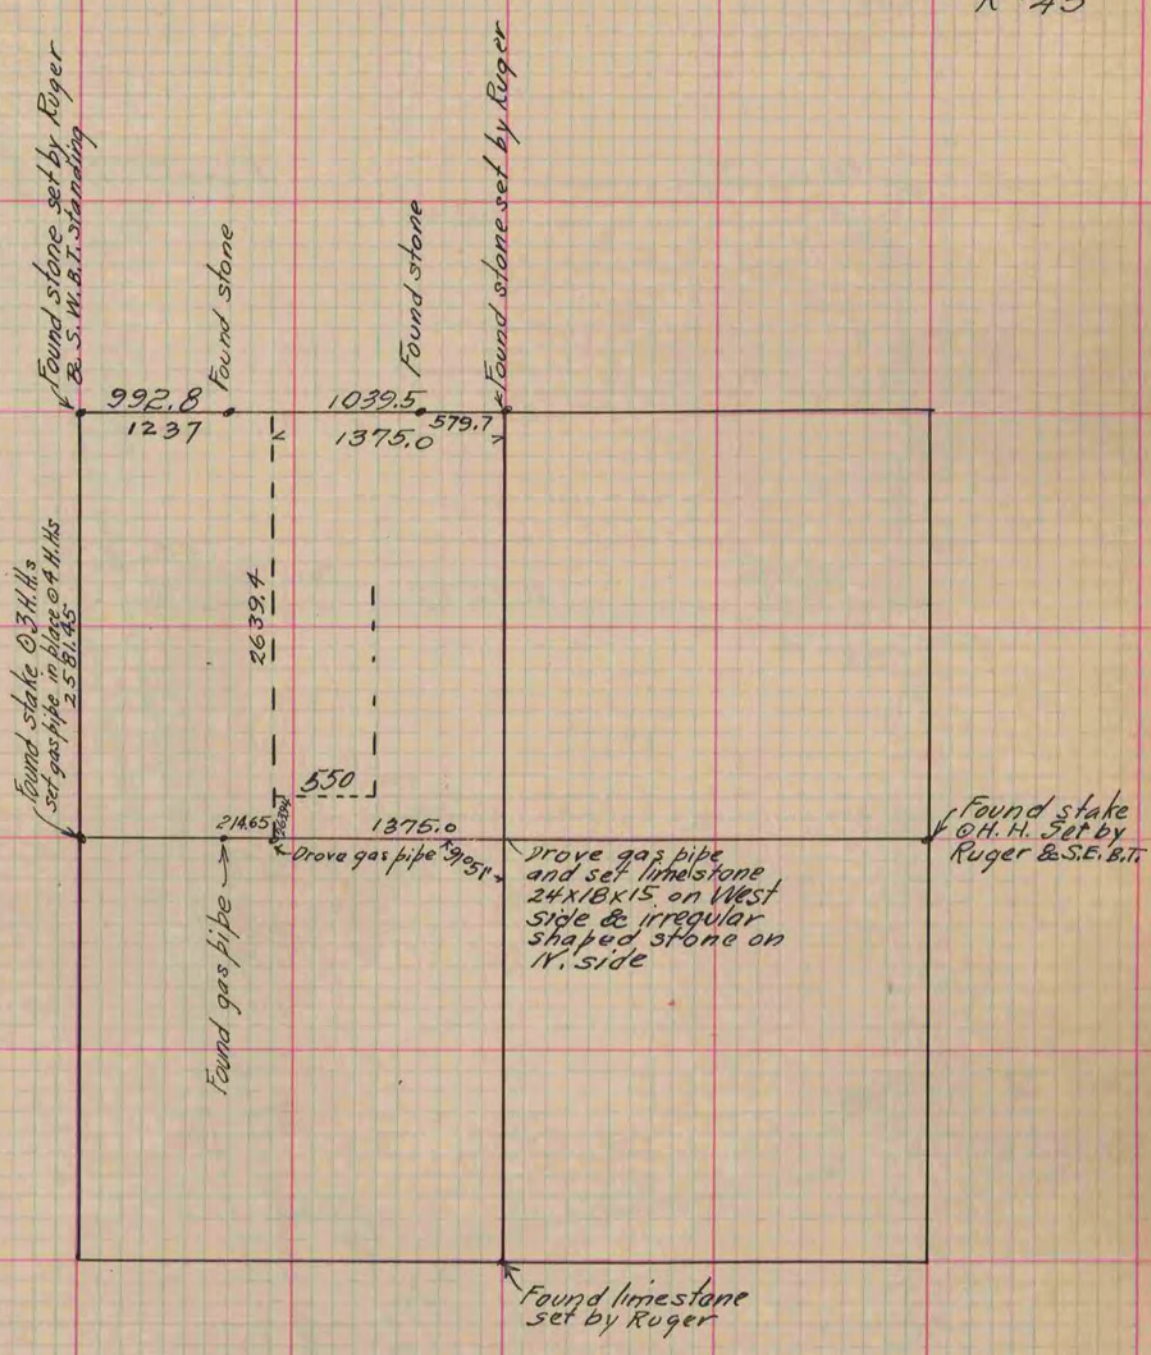 R 43
Found stone set by Ruger
& S.W.B.T. standing
Found stone
Found stone
Found stone set by Ruger
992.8
1039.5
579.7
1237
1375.0
Found stake @ 3 H.H.s
set gas pipe in place @ 4 H.Hs
2581.45
2639.4
550
214.65
1375.0
Drove gas pipe
90° 51'
Found gas pipe
Drove gas pipe
and set limestone
24x18x15 on West
side & irregular
shaped stone on
N. side
Found stake
@ H. H. Set by
Ruger & S.E. B.T.
Found limestone
set by Ruger